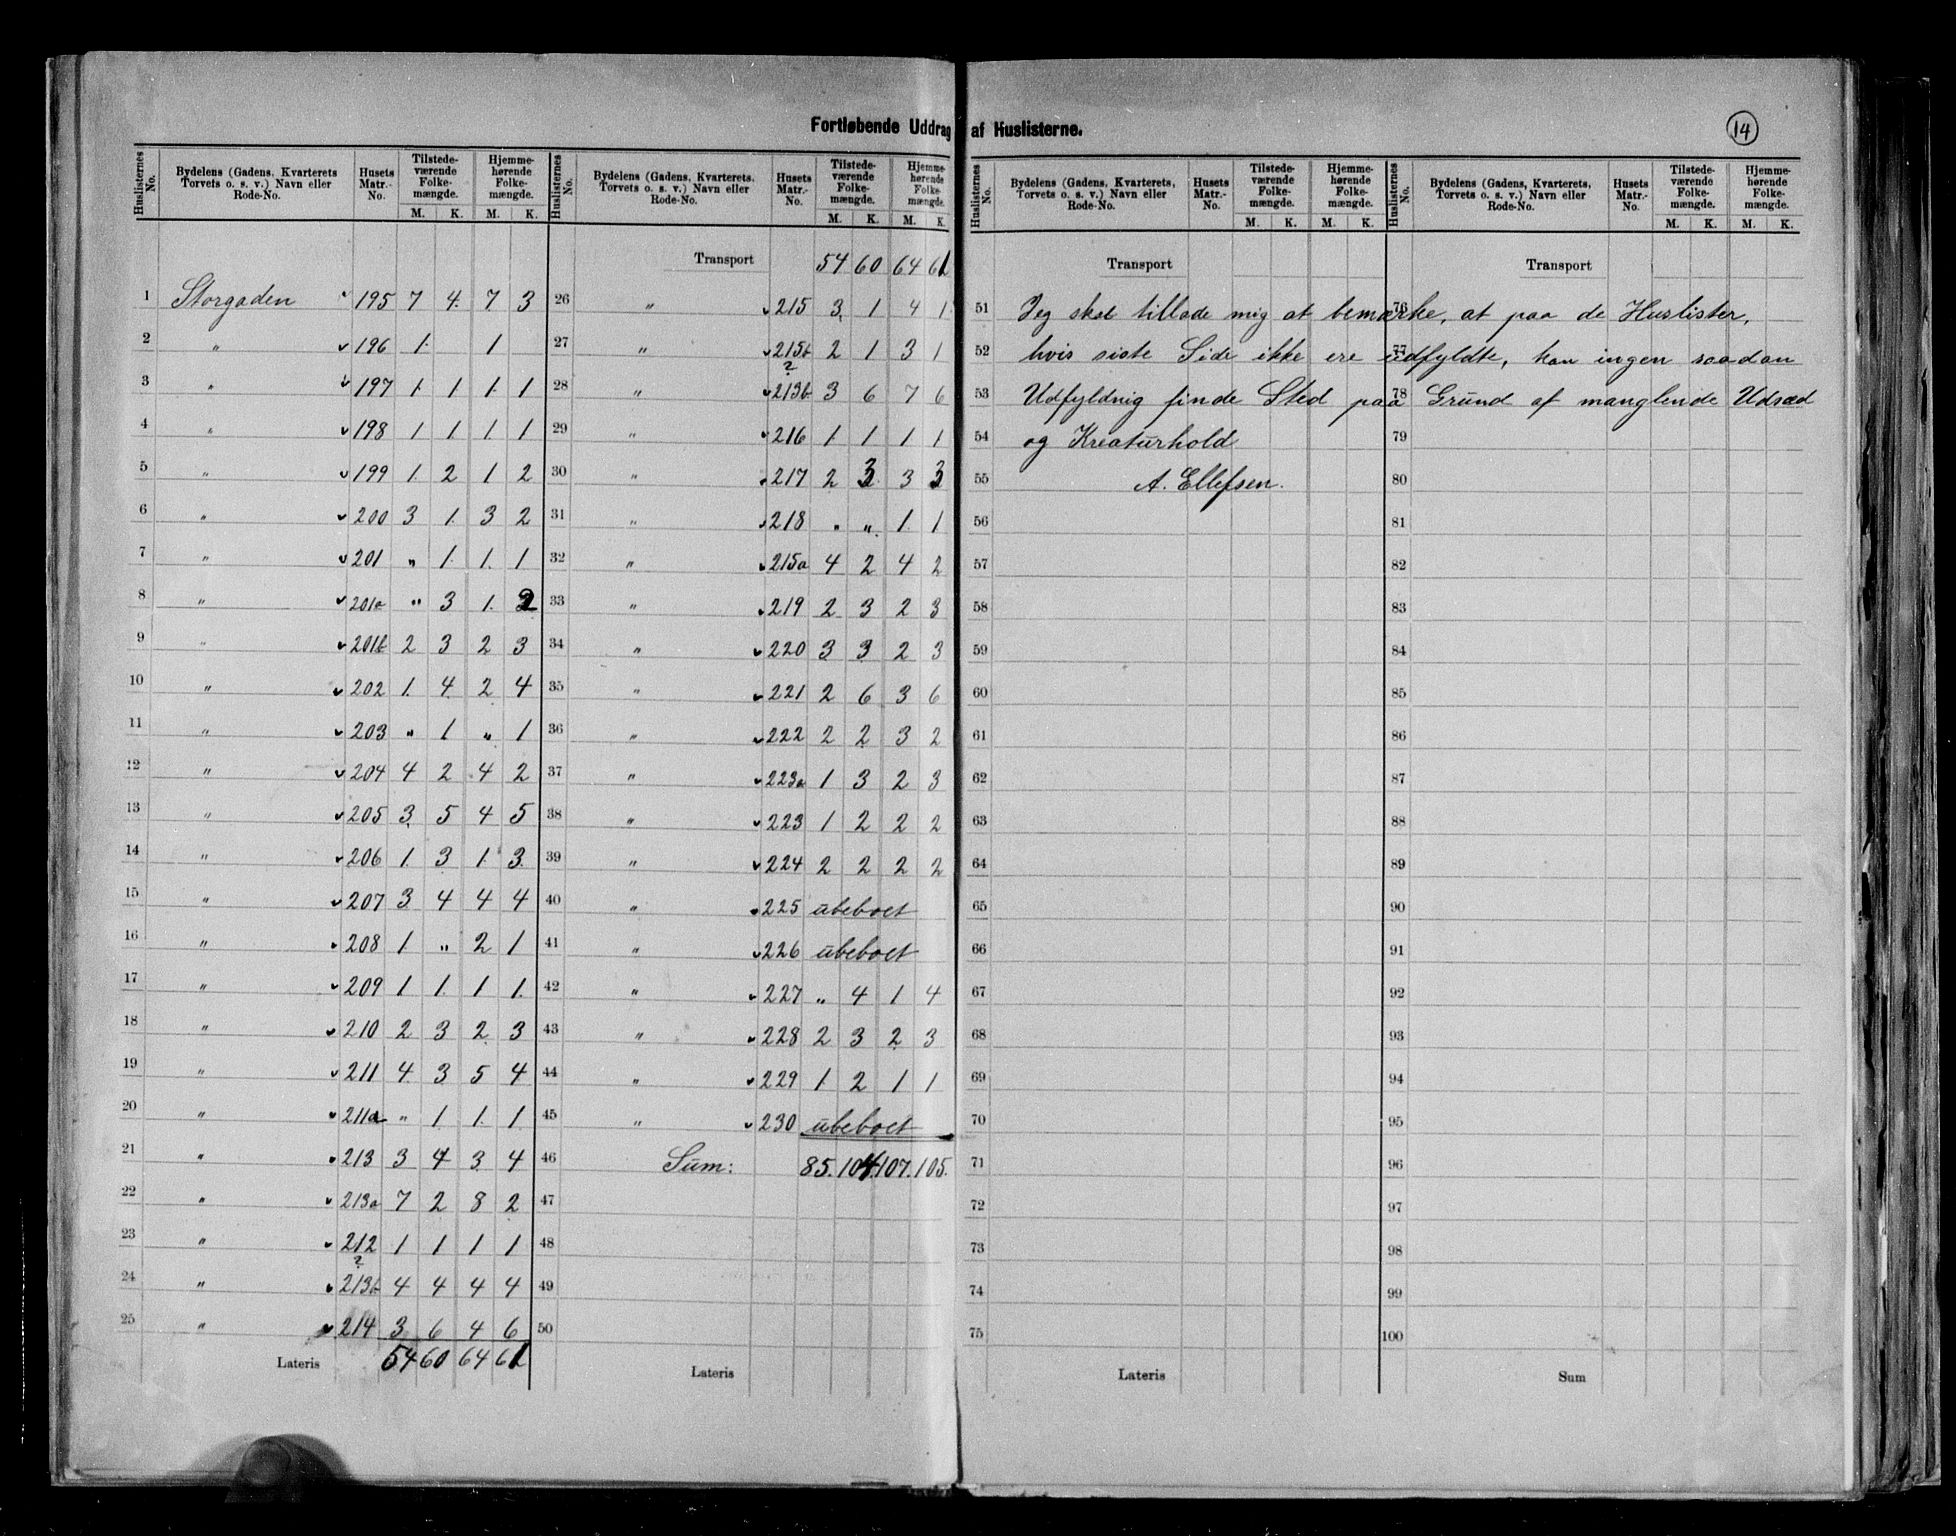 Fortløbende Uddrag af Huslisterne.
14
Huslisternes No. | Bydelens (Gadens, Kvarterets Torvets o. s. v.) Navn eller Rode-No. | Husets Matr.-No. | Tilstede-værende Folke-mængde. M. K. | Hjemme-hørende Folke-mængde. M. K.
1 Storgaden 195 7 4 7 3
2 " 196 1 1
3 " 197 1 1 1 1
4 " 198 1 1 1 1
5 " 199 1 2 1 2
6 " 200 3 1 3 2
7 " 201 " 1 1 1
8 " 201a " 3 1 2
9 " 201b 2 3 2 3
10 " 202 1 4 2 4
11 " 203 " 1 " 1
12 " 204 4 2 4 2
13 " 205 3 5 4 5
14 " 206 1 3 1 3
15 " 207 3 4 4 4
16 " 208 1 " 2 1
17 " 209 1 1 1 1
18 " 210 2 3 2 3
19 " 211 4 3 5 4
20 " 211a " 1 1 1
21 " 213 3 4 3 4
22 " 213a 7 2 8 2
23 " 212 1 1 1 1
?
24 " 213b 4 4 4 4
25 " 214 3 6 4 6
Lateris 54 60 64 61
Huslisternes No. | Bydelens (Gadens, Kvarterets, Torvets o. s. v.) Navn eller Rode-No. | Husets Matr.-No. | Tilstede-værende Folke-mængde. M. K. | Hjemme-hørende Folke-mængde. M. K.
Transport 54 60 64 61
26 " 215 3 1 4 1
27 " 215b 2 1 3 1
?
28 " 213b 3 6 7 6
29 " 216 1 1 1 1
30 " 217 2 3 3 3
31 " 218 " " 1 1
32 " 215a 4 2 4 2
33 " 219 2 3 2 3
34 " 220 3 3 2 3
35 " 221 2 6 3 6
36 " 222 2 2 3 2
37 " 223a 1 3 2 3
38 " 223 1 2 2 2
39 " 224 2 2 2 2
40 " 225 ubeboet
41 " 226 ubeboet
42 " 227 " 4 1 4
43 " 228 2 3 2 3
44 " 229 1 2 1 1
45 " 230 ubeboet
46 Sum: 85. 104. 107. 105.
47
48
49
50
Lateris
Huslisternes No. | Bydelens (Gadens, Kvarterets, Torvets o. s. v.) Navn eller Rode-No. | Husets Matr.-No. | Tilstede-værende Folke-mængde. M. K. | Hjemme-hørende Folke-mængde. M. K.
Huslisternes No. | Bydelens (Gadens, Kvarterets, Torvets o. s. v.) Navn eller Rode-No. | Husets Matr.-No. | Tilstede-værende Folke-mængde. M. K. | Hjemme-hørende Folke-mængde. M. K.
Transport Transport
51 Jeg skal tillade mig at bemærke, at paa de Huslister, 76
52 hvis siste Side ikke ere udfyldte, kan ingen saadan 77
53 Udfyldnig finde Sted paa Grund af manglende Udsæd 78
54 og Kreaturhold 79
55 A. Ellefsen. 80
56 81
57 82
58 83
59 84
60 85
61 86
62 87
63 88
64 89
65 90
66 91
67 92
68 93
69 94
70 95
71 96
72 97
73 98
74 99
75 100
Lateris Sum